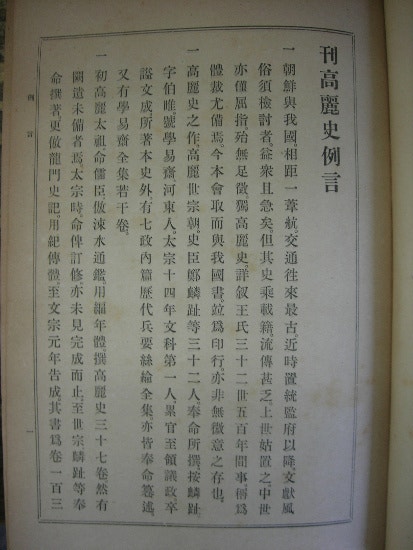 刊高麗史例言
一朝鮮與我國。相距一葦航。交通往來最古。近時置統監府以降。文獻風
俗須檢討者。益衆且急矣。但其史乘載籍。流傳甚乏。上世姑置之。中世
亦僅屈指。殆無足徵。獨高麗史。詳叙王氏三十二世五百年間事。稱爲
體裁尤備焉。今本會取而與我國書。竝爲印行。亦非無徵意之存也。
一高麗史之作。高麗世宗朝。史臣鄭麟趾等三十二人。奉命所撰。按麟趾
字伯睢號學易齋河東人。太宗十四年文科第一人。累官至領議政卒
謚文成所著本史外有七政內篇歷代兵要絲綸全集。亦皆奉命纂述。
又有學易齋全集若干卷。
一初高麗太祖命儒臣倣涑水通鑑。用編年體撰高麗史三十七卷然有
闕遺未備者焉太宗時命俾訂修。亦未見完成而止。至世宗麟趾等奉
命撰著。更倣龍門史記。用紀傳體。至文宗元年告成。其書爲卷一百三
例言
一